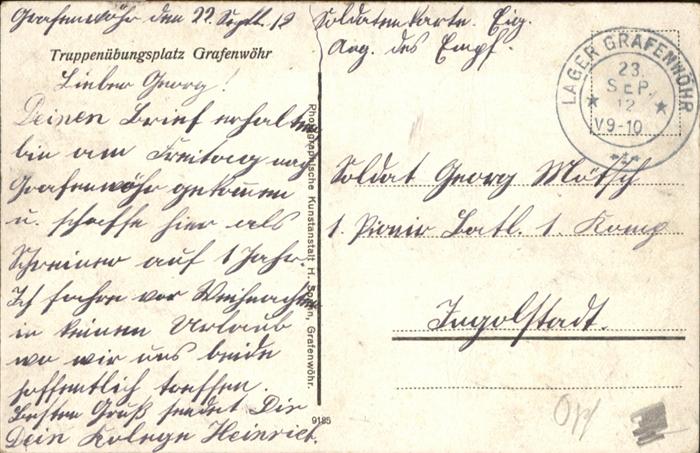 Grafenwöhr den 22 Sept. 12
Truppenübungsplatz Grafenwöhr
Lieber Georg!
Deinen Brief erhalten
bin am Freitag nach
Grafenwöhr gekommen
u. schaffe hier als
Schreiner auf 1 Jahr.
Ich fahre vor Weihnachten
in keinen Urlaub
wo wir uns beide
hoffentlich treffen.
Besten Gruß sendet Dir
Dein Kolege Heinrich.
Soldatenkarte. Eig.
Ang. des Empf.
LAGER GRAFENWÖHR
23.
SEP.
12
V9-10
Soldat Georg Mötsch
1. Pionir Batl. 1. Komp
Ingolstadt.
Photographische Kunstanstalt H. Grafenwöhr.
9185